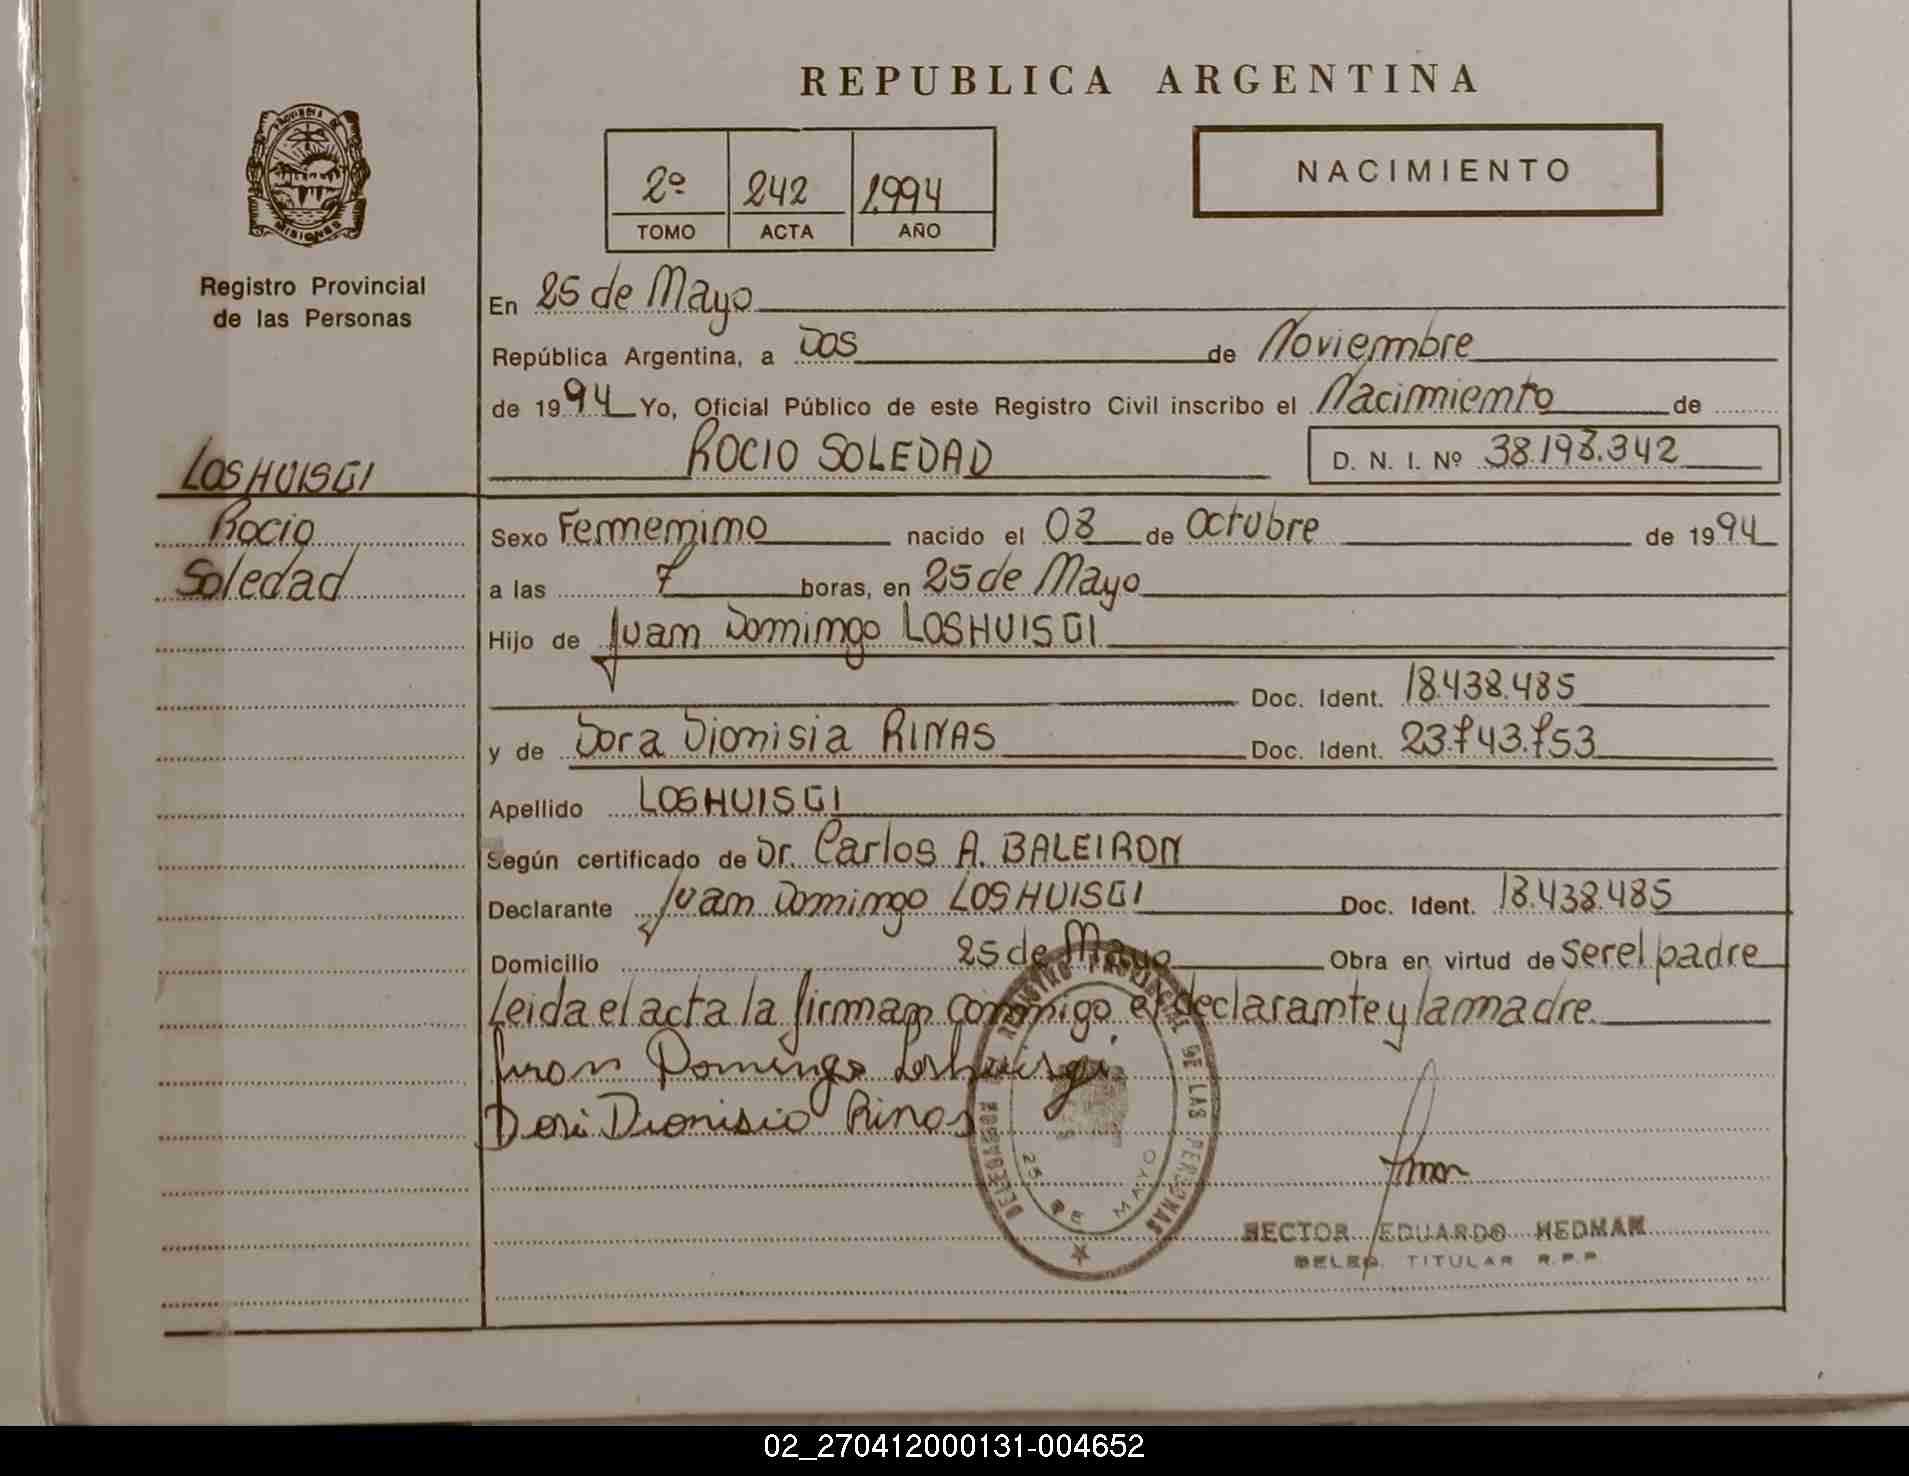 REPUBLICA ARGENTINA
NACIMIENTO
2º 242 1.994
TOMO ACTA AÑO
PROVINCIA DE
MISIONES
Registro Provincial
de las Personas
En 25 de Mayo
República Argentina, a Dos de Noviembre
de 1994 Yo, Oficial Público de este Registro Civil inscribo el Nacimiento de
ROCIO SOLEDAD D. N. I. Nº 38.198.342
LOSHUISGI
Rocio
Soledad
Sexo Femenino nacido el 08 de Octubre de 1994
a las 7 horas, en 25 de Mayo
Hijo de Juan Domingo LOSHUISGI
Doc. Ident. 18.438.485
y de Dora Dionisia RINAS Doc. Ident. 23.743.753
Apellido LOSHUISGI
Según certificado de Dr. Carlos A. BALEIRON
Declarante Juan Domingo LOSHUISGI Doc. Ident. 18.438.485
Domicilio 25 de Mayo Obra en virtud de ser el padre
Leida el acta la firman conmigo el declarante y la madre.
Juan Domingo Loshuisgi
Dionisia Rinas
REGISTRO PROVINCIAL DE LAS PERSONAS
25 DE MAYO
HECTOR EDUARDO HEDMAN
DELEG. TITULAR R.P.P.
02_270412000131-004652